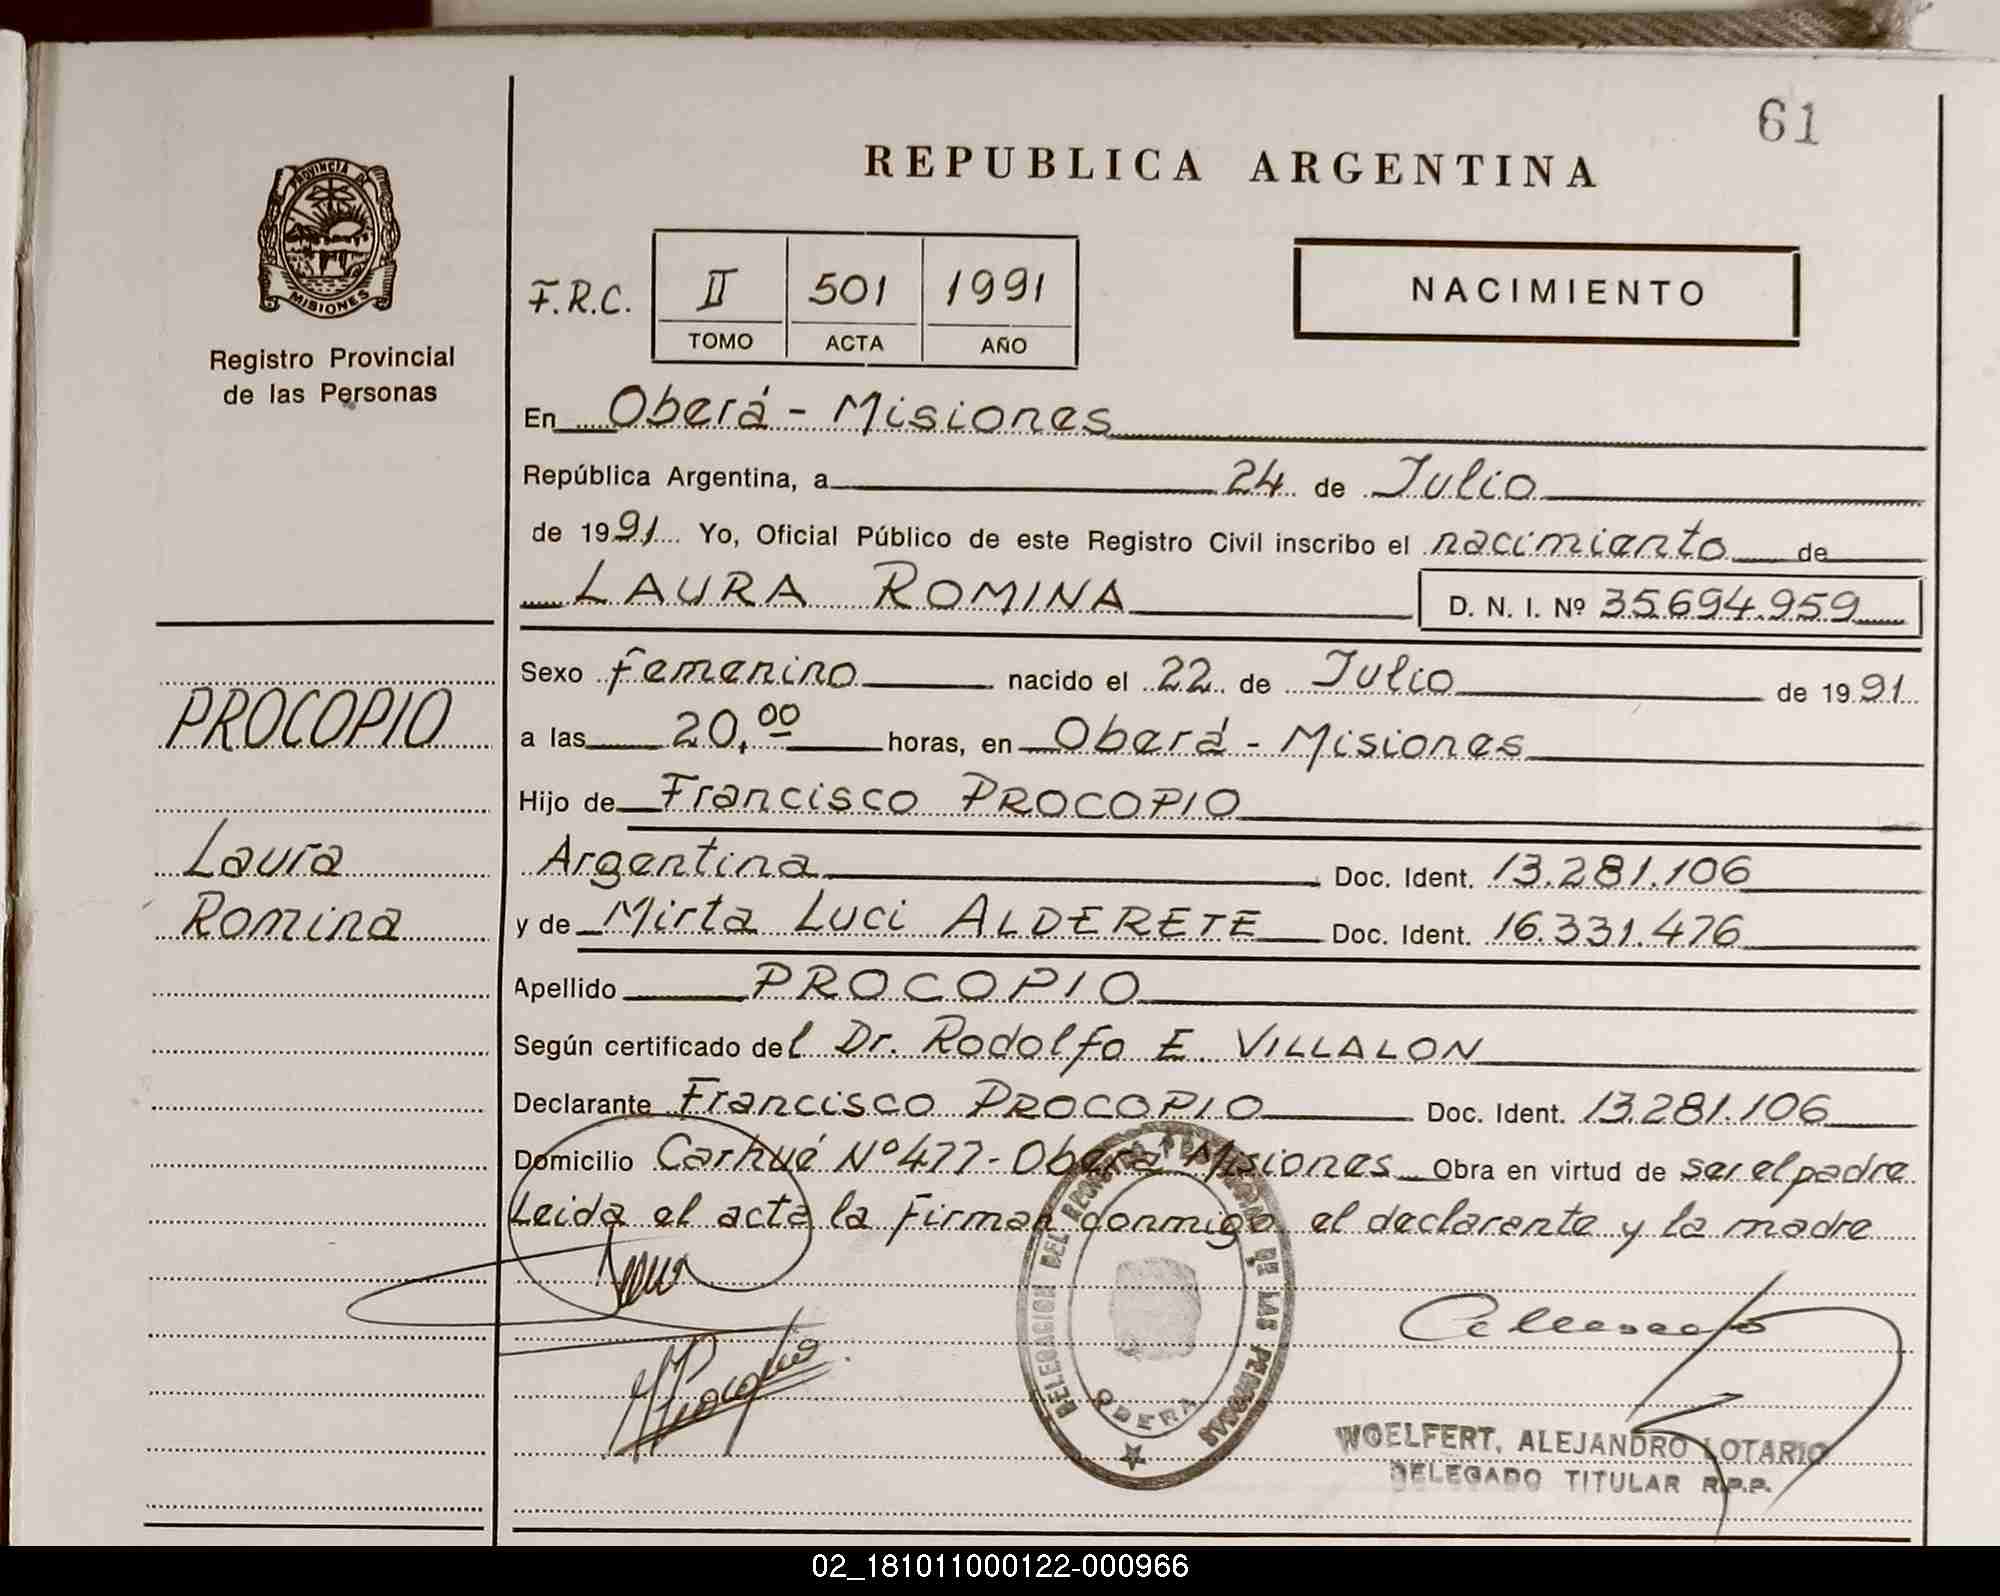 61
REPUBLICA ARGENTINA
PROVINCIA DE
MISIONES
Registro Provincial
de las Personas
F.R.C.
II 501 1991
TOMO ACTA AÑO
NACIMIENTO
En Oberá - Misiones
República Argentina, a 24 de Julio
de 1991 Yo, Oficial Público de este Registro Civil inscribo el nacimiento de
LAURA ROMINA D. N. I. Nº 35.694.959
PROCOPIO
Laura
Romina
Sexo femenino nacido el 22 de Julio de 1991
a las 20,00 horas, en Oberá - Misiones
Hijo de Francisco PROCOPIO
Argentina Doc. Ident. 13.281.106
y de Mirta Luci ALDERETE Doc. Ident. 16.331.476
Apellido PROCOPIO
Según certificado del Dr. Rodolfo E. VILLALON
Declarante Francisco PROCOPIO Doc. Ident. 13.281.106
Domicilio Carhué Nº 477 - Oberá Misiones Obra en virtud de ser el padre
Leida el acta la firman conmigo el declarante y la madre
DELEGACION DEL REGISTRO DE LAS PERSONAS
OBERA
WOELFERT, ALEJANDRO LOTARIO
DELEGADO TITULAR R.P.P.
02_181011000122-000966